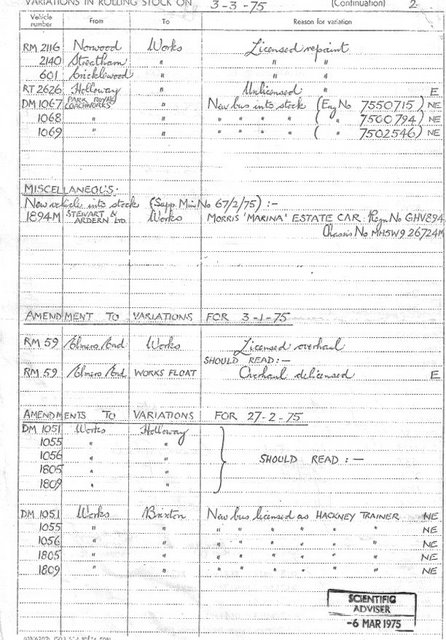 VARIATIONS IN ROLLING STOCK ON 3-3-75 (Continuation) 2
Vehicle number From To Reason for variation
RM 2116 Norwood Works Licensed repaint
2140 Streatham " " "
601 Cricklewood " " "
RT 2626 Holloway " Unlicensed " E
DM 1067 PARK ROYAL COACHWORKS " New bus into stock (Eng No 7550715) NE
1068 " " " " " " ( " 7500794) NE
1069 " " " " " " ( " 7502546) NE
MISCELLANEOUS:
New vehicle into stock (Supp. Min. No 67/2/75) :-
1894M STEWART & ARDERN LTD Works MORRIS 'MARINA' ESTATE CAR. Regn No GHV894
Chassis No MH5W9 26724M
AMENDMENT TO VARIATIONS FOR 3-1-75
RM 59 Elmers End Works Licensed overhaul
SHOULD READ:-
RM 59 Elmers End WORKS FLOAT Overhaul delicensed E
AMENDMENTS TO VARIATIONS FOR 27-2-75
DM 1051 Works Holloway
1055 " "
1056 " " SHOULD READ :-
1805 " "
1809 " "
DM 1051 Works Brixton New bus licensed as HACKNEY TRAINER NE
1055 " " " " " " " " NE
1056 " " " " " " " " NE
1805 " " " " " " " " NE
1809 " " " " " " " " NE
SCIENTIFIC
ADVISER
-6 MAR 1975